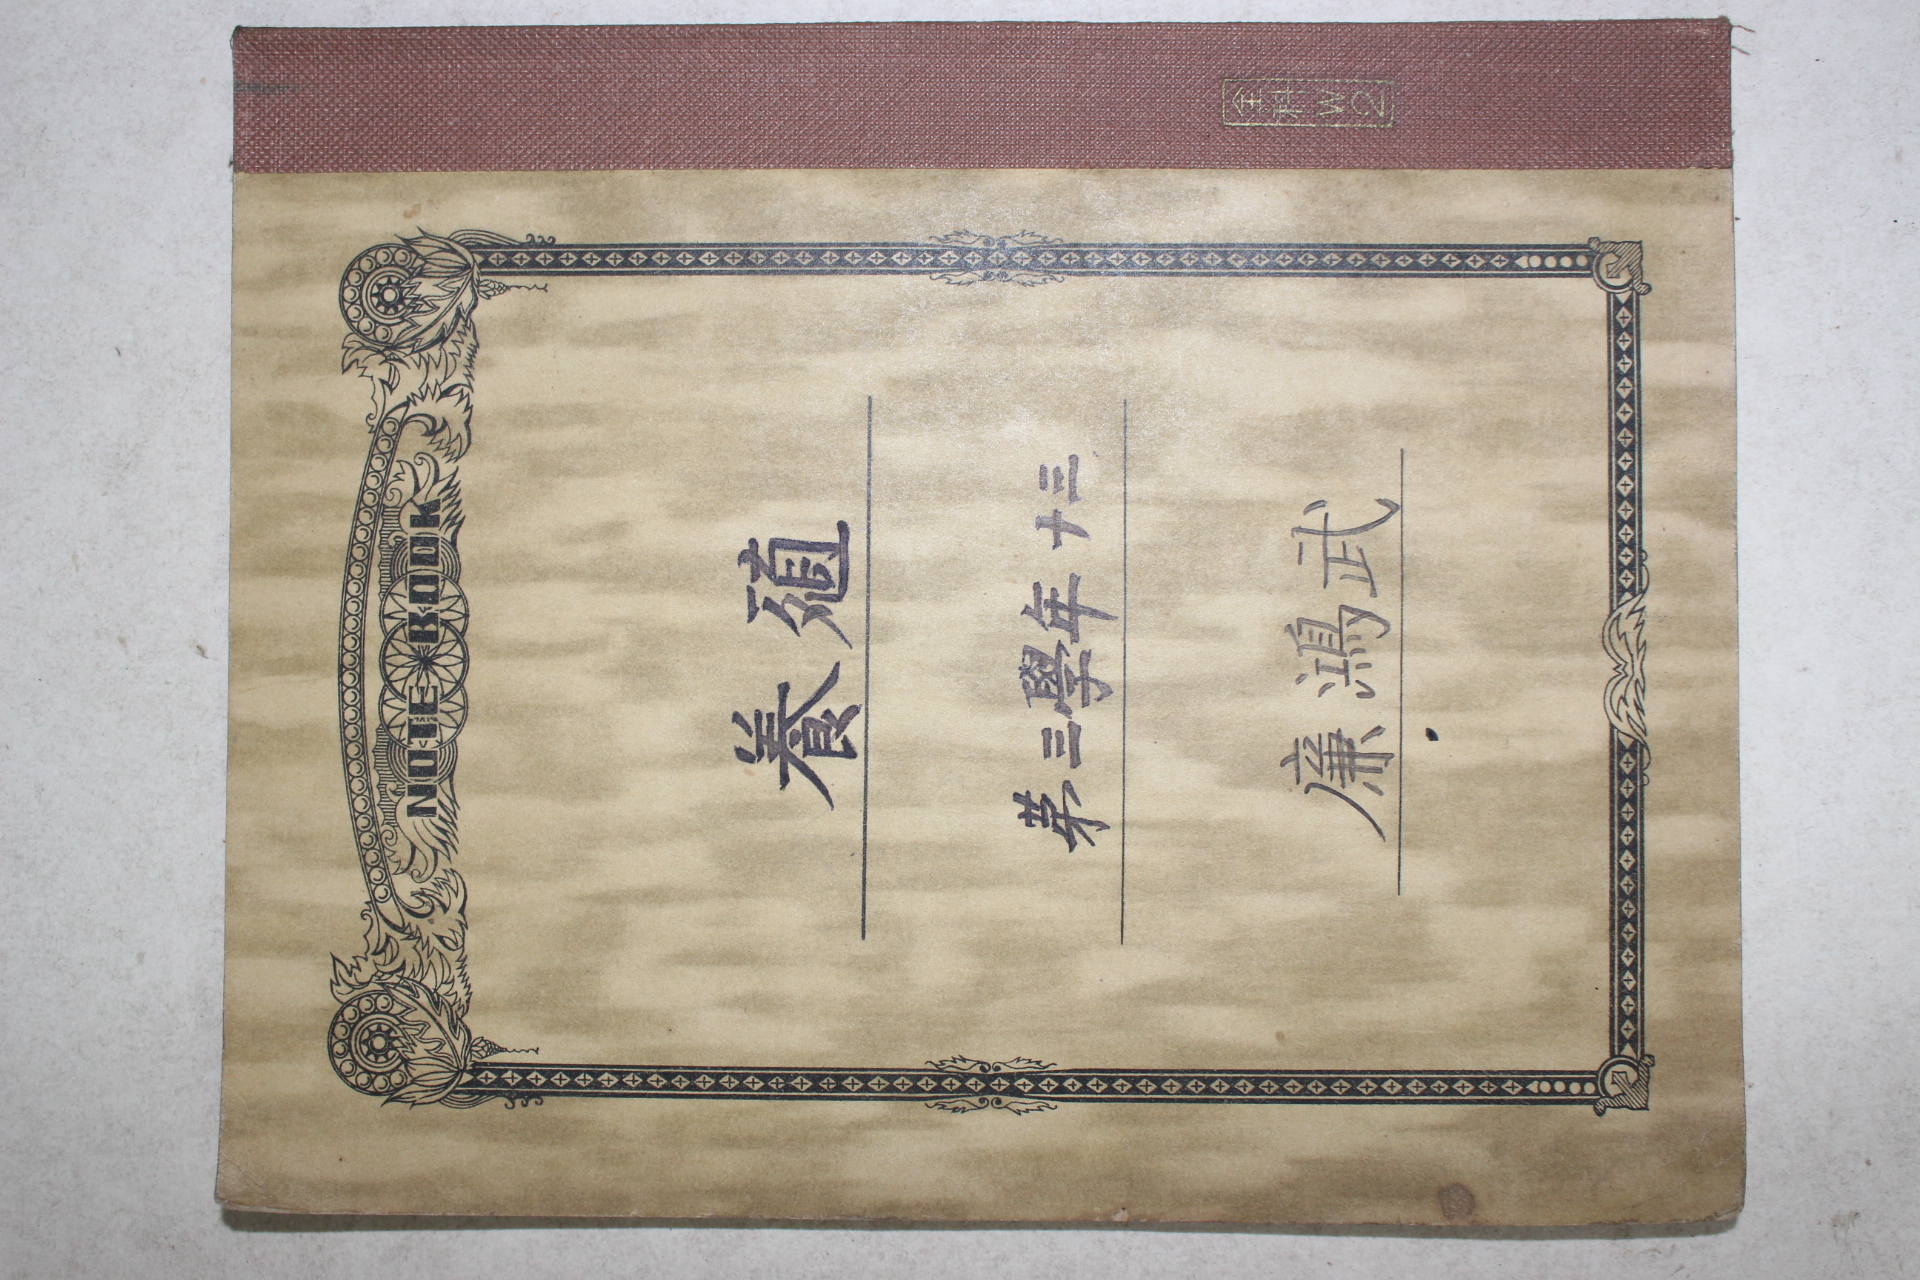 NOTE BOOK
養殖
第三學年 十三
廉鴻武
全科 W2